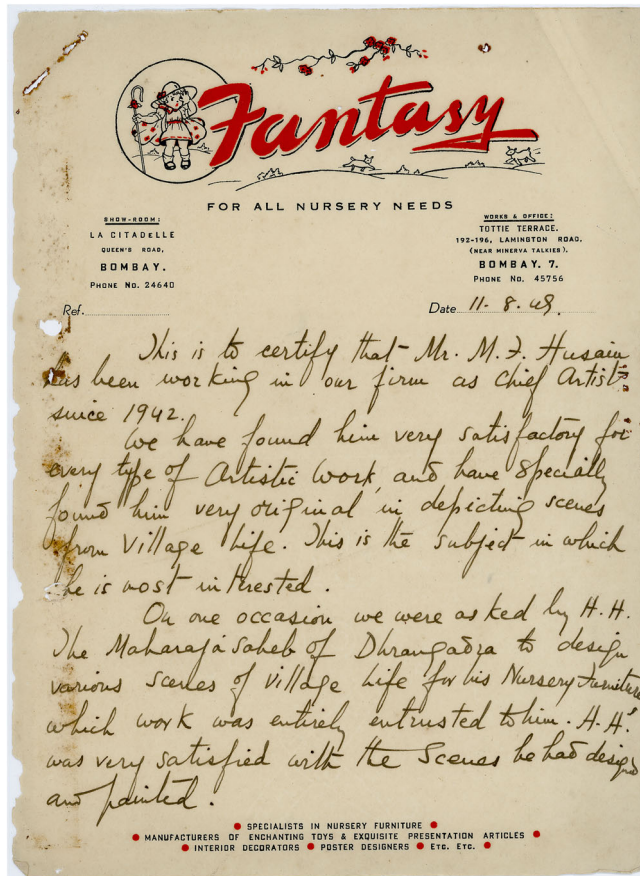 Fantasy
FOR ALL NURSERY NEEDS
SHOW-ROOM:
LA CITADELLE
QUEEN'S ROAD,
BOMBAY.
PHONE NO. 24640
WORKS & OFFICE:
TOTTIE TERRACE.
192-196, LAMINGTON ROAD.
(NEAR MINERVA TALKIES).
BOMBAY. 7.
PHONE NO. 45756
Ref.
Date 11. 8. 48.
This is to certify that Mr. M. F. Husain
has been working in our firm as Chief Artist
since 1942.
We have found him very satisfactory for
every type of Artistic Work, and have specially
found him very original in depicting scenes
from Village Life. This is the subject in which
he is most interested.
On one occasion we were asked by H.H.
The Maharaja Saheb of Dhrangadra to design
various scenes of village life for his Nursery Furniture
which work was entirely entrusted to him. H.H.
was very satisfied with the Scenes he had designed
and painted.
SPECIALISTS IN NURSERY FURNITURE
MANUFACTURERS OF ENCHANTING TOYS & EXQUISITE PRESENTATION ARTICLES
INTERIOR DECORATORS • POSTER DESIGNERS • ETC. ETC.